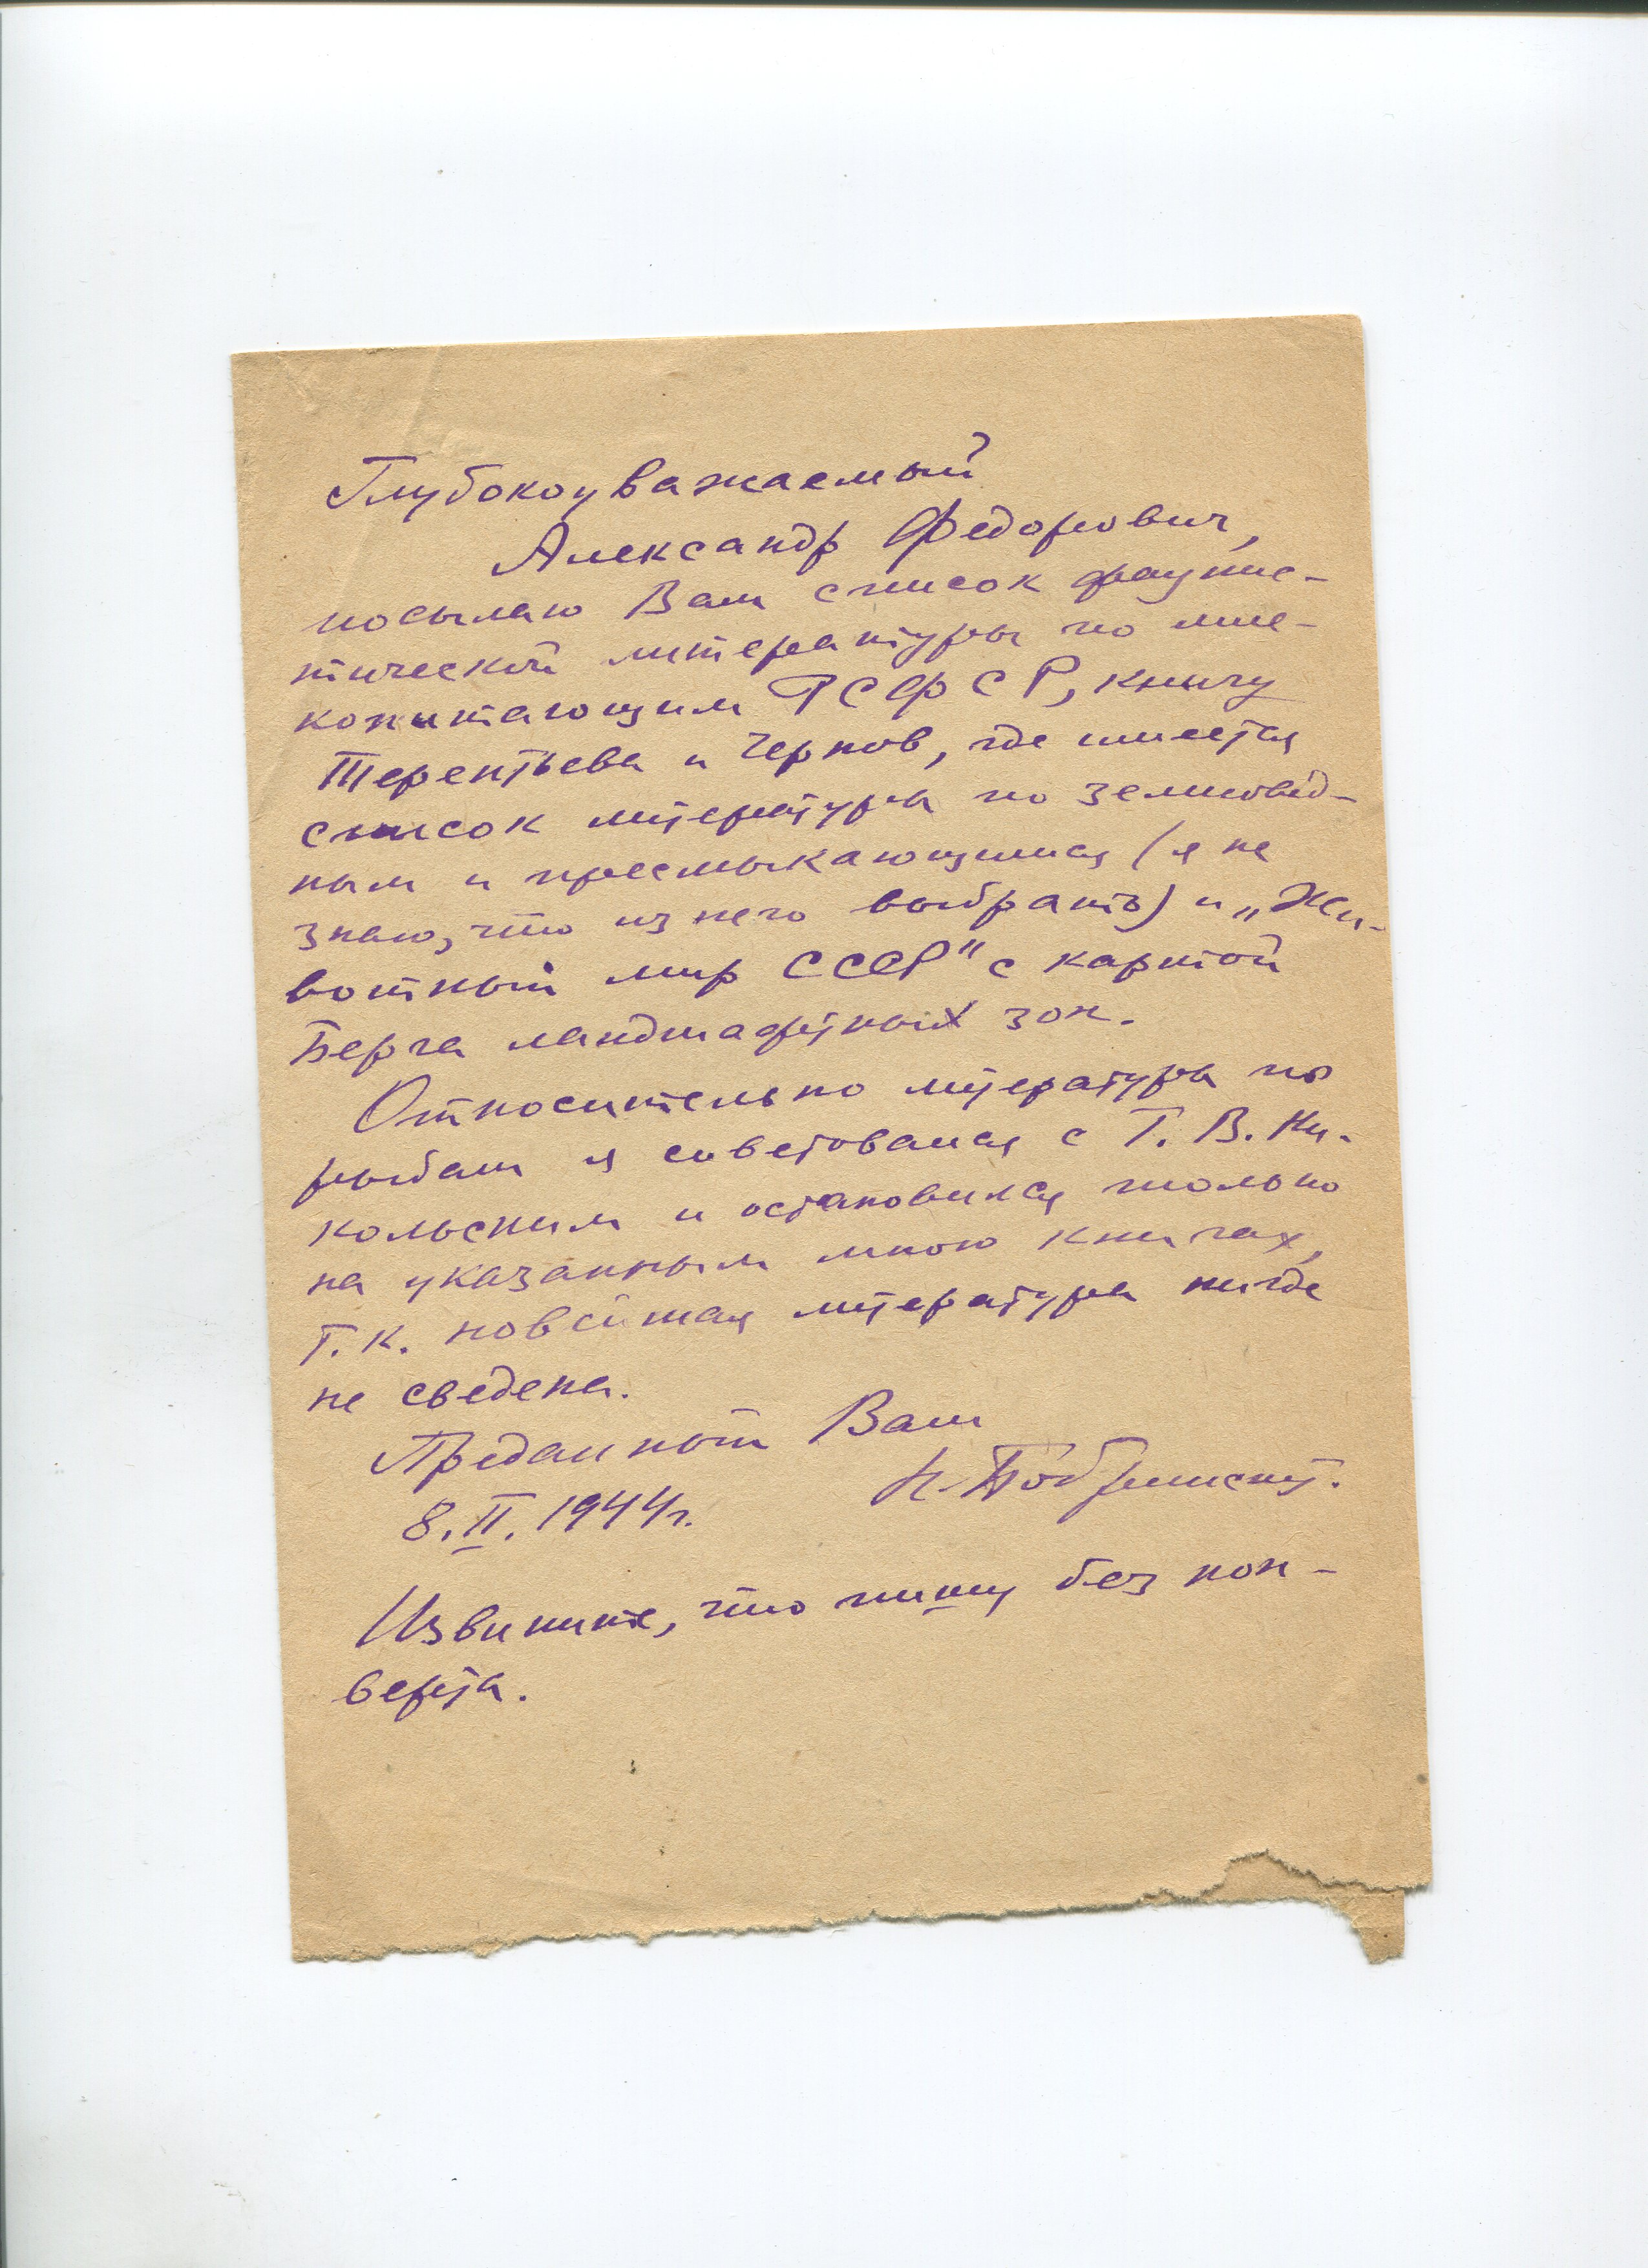 Глубокоуважаемый
Александр Федорович,
посылаю Вам список фаунис-
тической литературы по мле-
копитающим РСФСР, книгу
Терентьева и Чернов, где имеется
список литературы по земновод-
ным и пресмыкающимся (я не
знаю, что из него выбрать) и „Жи-
вотный мир СССР" с картой
Берга ландшафтных зон.
Относительно литературы по
рыбам я советовался с Г. В. Ни-
кольским и остановился только
на указанным мною книгах,
т.к. новейшая литература нигде
не сведена.
Преданный Вам
Н. Бобринский.
8.II.1944г.
Извините, что пишу без кон-
верта.